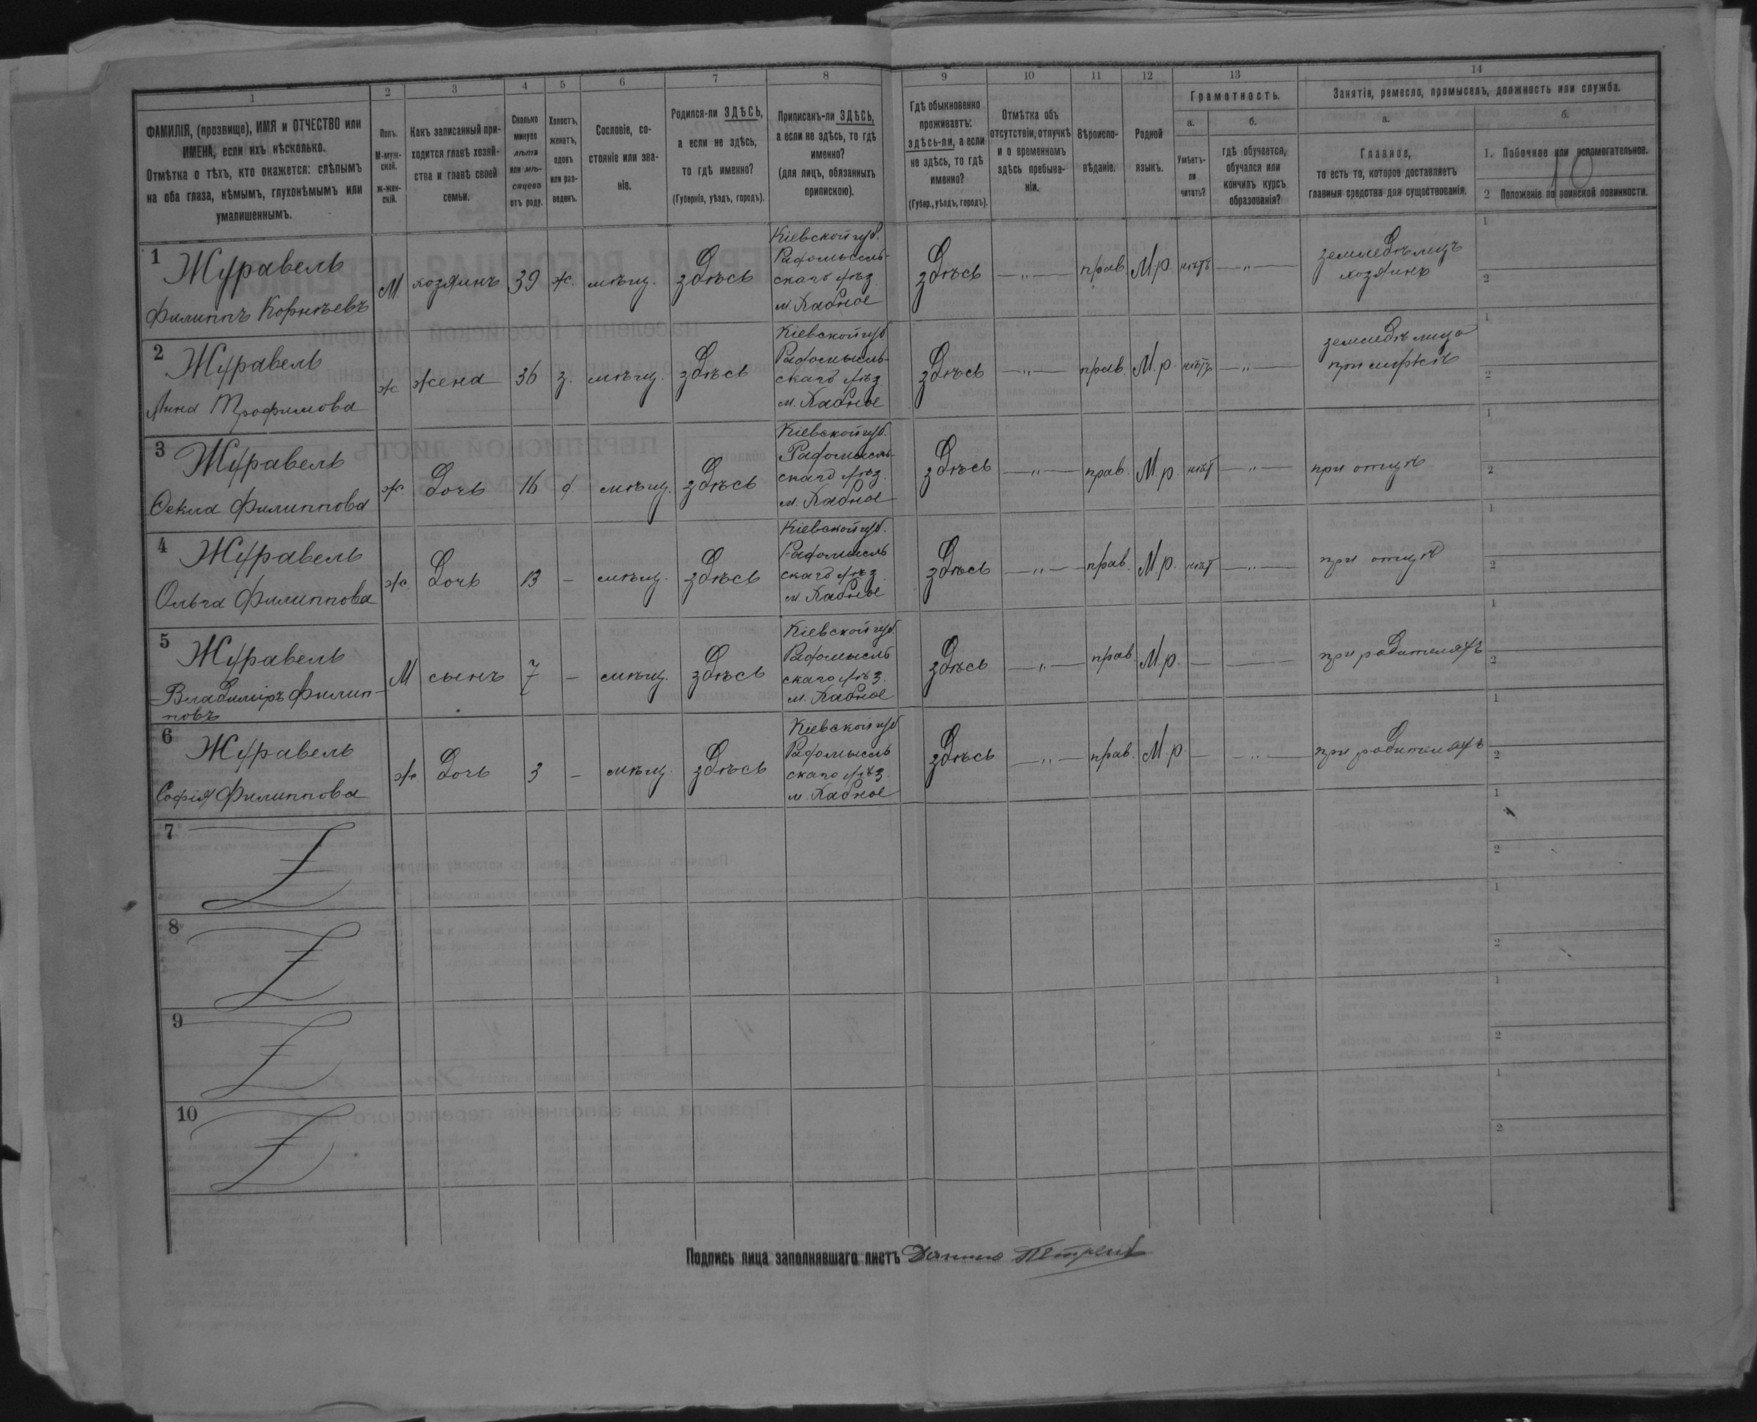 1 2 3 4 5 6 7 8 9 10 11 12 13 14
ФАМИЛІЯ, (прозвище), ИМЯ и ОТЧЕСТВО или
ИМЕНА, если ихъ нѣсколько.
Отмѣтка о тѣхъ, кто окажется: слѣпымъ
на оба глаза, нѣмымъ, глухонѣмымъ или
умалишеннымъ.
Полъ.
М-муж-
ской.
ж-жен-
скій.
Какъ записанный при-
ходится главѣ хозяй-
ства и главѣ своей
семьи.
Сколько
минуло
лѣтъ
или мѣ-
сяцевъ
отъ роду.
Холостъ,
женатъ,
вдовъ
или раз-
веденъ.
Сословіе, со-
стояніе или зва-
ніе.
Родился-ли ЗДѢСЬ,
а если не здѣсь,
то гдѣ именно?
(Губернія, уѣздъ, городъ).
Приписанъ-ли ЗДѢСЬ,
а если не здѣсь, то гдѣ
именно?
(для лицъ, обязанныхъ
припискою).
Гдѣ обыкновенно
проживаетъ:
здѣсь-ли, а если
не здѣсь, то гдѣ
именно?
(Губер., уѣздъ, городъ).
Отмѣтка объ
отсутствіи, отлучкѣ
и о временномъ
здѣсь пребыва-
ніи.
Вѣроиспо-
вѣданіе.
Родной
языкъ.
Грамотность.
а.
Умѣетъ-
ли
читать?
б.
гдѣ обучается,
обучался или
кончилъ курсъ
образованія?
Занятіе, ремесло, промыселъ, должность или служба.
а.
Главное,
то есть то, которое доставляетъ
главныя средства для существованія.
б.
1. Побочное или вспомогательное.
2 Положеніе по воинской повинности.
10
1 Журавель
Филиппъ Корнѣевъ
М. хозяинъ 39 ж. мѣщ. здѣсь
Кіевской губ.
Радомысль-
скаго уѣз
м. Кабное
здѣсь — „ — прав М.р нѣтъ — „ —
земледѣлецъ
хозяинъ
1
2
2 Журавель
Анна Трофимова
ж жена 36 з. мѣщ. здѣсь
Кіевской губ
Радомысль-
скаго уѣз
м. Кабное
здѣсь — „ — прав. М.р нѣтъ — „ —
земледѣлица
при мужѣ
1
2
3 Журавель
Фекла Филиппова
ж. Дочь 16 д. мѣщ. здѣсь
Кіевской губ.
Радомысль-
скаго уѣз.
м. Кабное
здѣсь — „ — прав. М.р нѣт — „ —
при отцѣ
1
2
4 Журавель
Ольга Филиппова
ж. Дочь 13 — мѣщ. здѣсь
Кіевской губ.
Радомысль
скаго уѣз.
м. Кабное
здѣсь — „ — прав. М.р. нѣт — „ —
при отцѣ
1
2
5 Журавель
Владиміръ Филип-
повъ
М сынъ 7 — мѣщ. здѣсь
Кіевской губ
Радомысль
скаго уѣз.
м. Кабное
здѣсь — „ — прав М.р. — —
при родителяхъ
1
2
6 Журавель
Софія Филиппова
ж Дочь 3 — мѣщ. здѣсь
Кіевской губ
Радомысль
скаго уѣз
м. Кабное
здѣсь — „ — прав. М.р — — „ —
при родителяхъ
1
2
7
1
2
8
1
2
9
1
2
10
1
2
Подпись лица заполнявшаго листъ